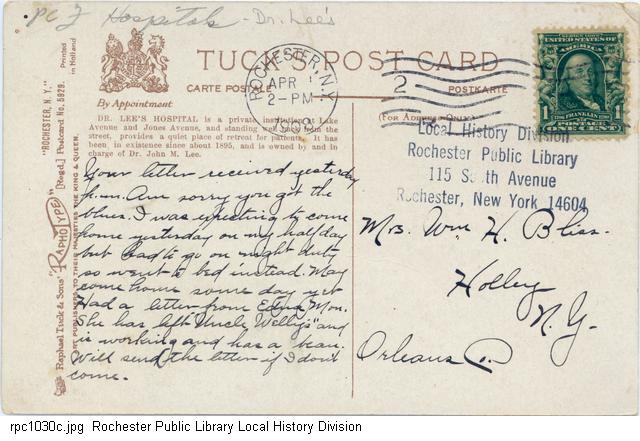 PC Z Hospitals - Dr. Lee's
TUCK'S POST CARD
CARTE POSTALE
POSTKARTE
By Appointment
(For Address Only)
ROCHESTER, N.Y.
APR 1
2-PM
2
SERIES 1902
UNITED STATES OF
AMERICA
1 FRANKLIN 1
POSTAGE
ONE CENT
DR. LEE'S HOSPITAL is a private institution at Lake
Avenue and Jones Avenue, and standing well back from the
street, provides a quiet place of retreat for patients. It has
been, in existence since about 1895, and is owned by and in
charge of Dr. John M. Lee.
Local History Division
Rochester Public Library
115 South Avenue
Rochester, New York 14604
Your letter received yesterday
p.m. Am sorry you got the
blues. I was expecting to come
home yesterday on my half day
but had to go on night duty
so went to bed instead. May
come home some day yet
Had a letter from Edna Mon.
She has left Uncle Welly's and
is working and has a beau.
Will send the letter if I don't
come.
Mrs. Wm H. Bliss.
Holley
N.Y.
Orleans Co.
"ROCHESTER, N. Y."
[Regd.] Postcard No. 5929.
Printed
in Holland
RAPHOTYPE
Raphael Tuck & Sons'
ART PUBLISHERS TO THEIR MAJESTIES THE KING & QUEEN.
rpc1030c.jpg Rochester Public Library Local History Division